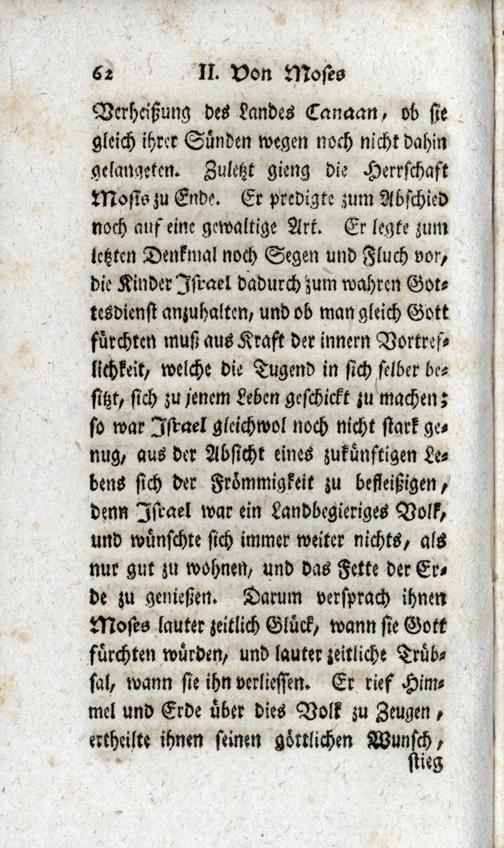 62 II. Von Moses
Verheißung des Landes Canaan, ob sie
gleich ihrer Sünden wegen noch nicht dahin
gelangeten. Zuletzt gieng die Herrschaft
Mosis zu Ende. Er predigte zum Abschied
noch auf eine gewaltige Art. Er legte zum
letzten Denkmal noch Segen und Fluch vor,
die Kinder Israel dadurch zum wahren Got-
tesdienst anzuhalten, und ob man gleich Gott
fürchten muß aus Kraft der innern Vortref-
lichkeit, welche die Tugend in sich selber be-
sitzt, sich zu jenem Leben geschickt zu machen;
so war Israel gleichwol noch nicht stark ge-
nug, aus der Absicht eines zukünftigen Le-
bens sich der Frömmigkeit zu befleißigen,
denn Israel war ein Landbegieriges Volk,
und wünschte sich immer weiter nichts, als
nur gut zu wohnen, und das Fette der Er-
de zu genießen. Darum versprach ihnen
Moses lauter zeitlich Glück, wann sie Gott
fürchten würden, und lauter zeitliche Trüb-
sal, wann sie ihn verliessen. Er rief Him-
mel und Erde über dies Volk zu Zeugen,
ertheilte ihnen seinen göttlichen Wunsch,
stieg